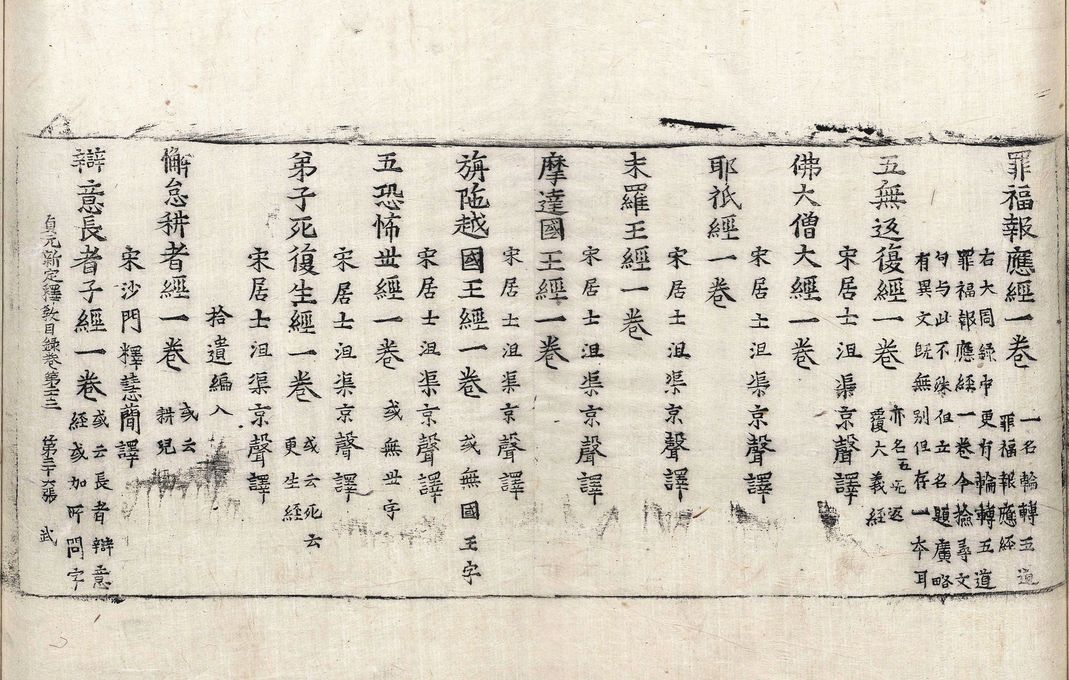 罪福報應經一卷 一名輪轉五道
罪福報應經
右大周錄中更有輪轉五道
罪福報應經一卷今撿尋文
句与此不殊但立名題廣略
有異文旣無別但存一本耳
五無返復經一卷 亦名五无返
覆大義經
宋居士沮渠京聲譯
佛大僧大經一卷
宋居士沮渠京聲譯
耶祇經一卷
宋居士沮渠京聲譯
末羅王經一卷
宋居士沮渠京聲譯
摩達國王經一卷
宋居士沮渠京聲譯
旃陁越國王經一卷 或無國王字
宋居士沮渠京聲譯
五恐怖世經一卷 或無世字
宋居士沮渠京聲譯
弟子死復生經一卷 或云死云
更生經
宋居士沮渠京聲譯
拾遺編入
懈怠耕者經一卷 或云
耕兒
宋沙門釋慧簡譯
辯意長者子經一卷 或云長者辯意
經或加所問字
貞元新定釋教目錄卷第二十三 第二十六張 武